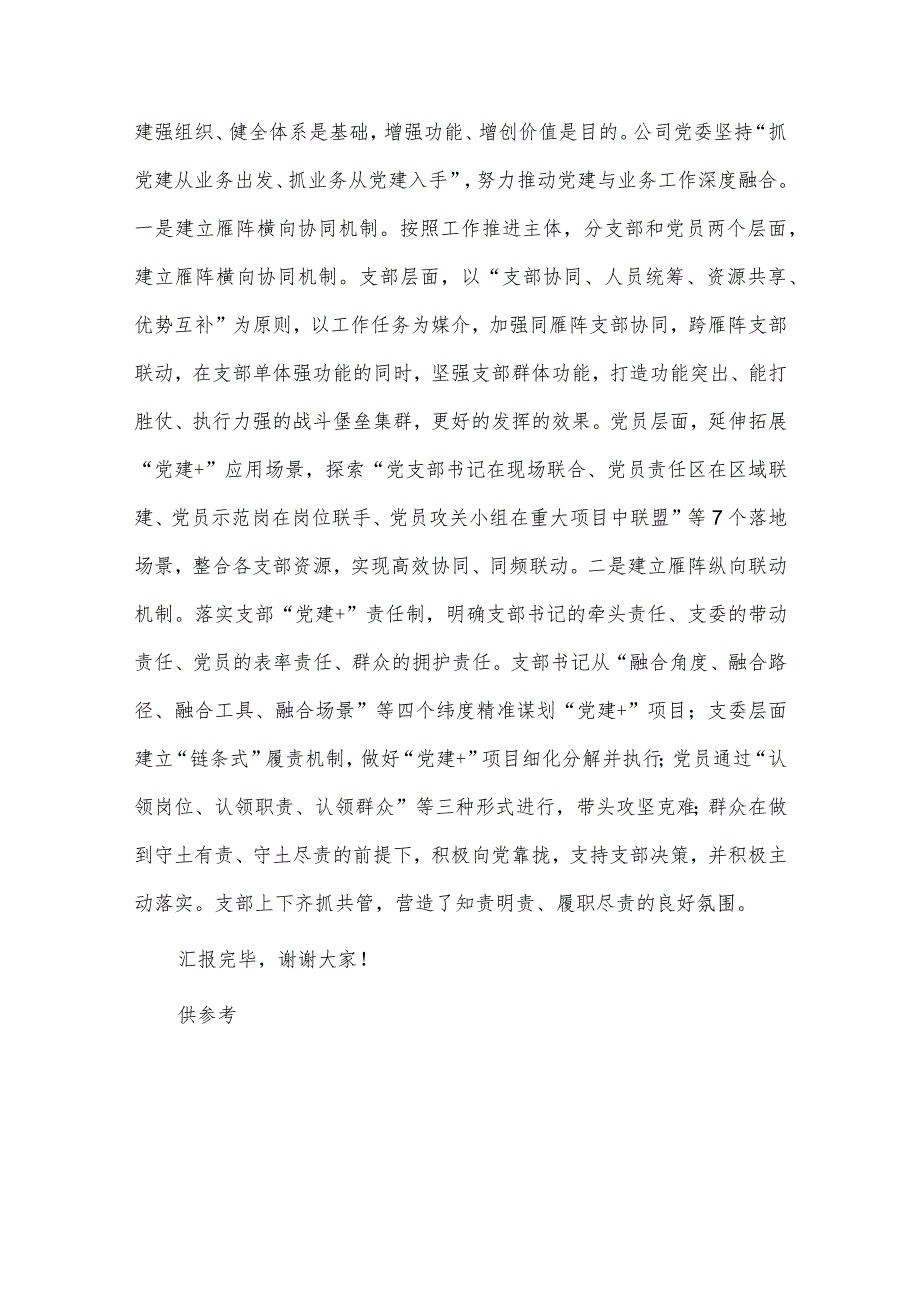 建强组织、健全体系是基础，增强功能、增创价值是目的。公司党委坚持“抓
党建从业务出发、抓业务从党建入手”，努力推动党建与业务工作深度融合。
一是建立雁阵横向协同机制。按照工作推进主体，分支部和党员两个层面，
建立雁阵横向协同机制。支部层面，以“支部协同、人员统筹、资源共享、
优势互补”为原则，以工作任务为媒介，加强同雁阵支部协同，跨雁阵支部
联动，在支部单体强功能的同时，坚强支部群体功能，打造功能突出、能打
胜仗、执行力强的战斗堡垒集群，更好的发挥的效果。党员层面，延伸拓展
“党建+”应用场景，探索“党支部书记在现场联合、党员责任区在区域联
建、党员示范岗在岗位联手、党员攻关小组在重大项目中联盟”等7个落地
场景，整合各支部资源，实现高效协同、同频联动。二是建立雁阵纵向联动
机制。落实支部“党建+”责任制，明确支部书记的牵头责任、支委的带动
责任、党员的表率责任、群众的拥护责任。支部书记从“融合角度、融合路
径、融合工具、融合场景”等四个纬度精准谋划“党建+”项目；支委层面
建立“链条式”履责机制，做好“党建+”项目细化分解并执行；党员通过“认
领岗位、认领职责、认领群众”等三种形式进行，带头攻坚克难；群众在做
到守土有责、守土尽责的前提下，积极向党靠拢，支持支部决策，并积极主
动落实。支部上下齐抓共管，营造了知责明责、履职尽责的良好氛围。
汇报完毕，谢谢大家！
供参考